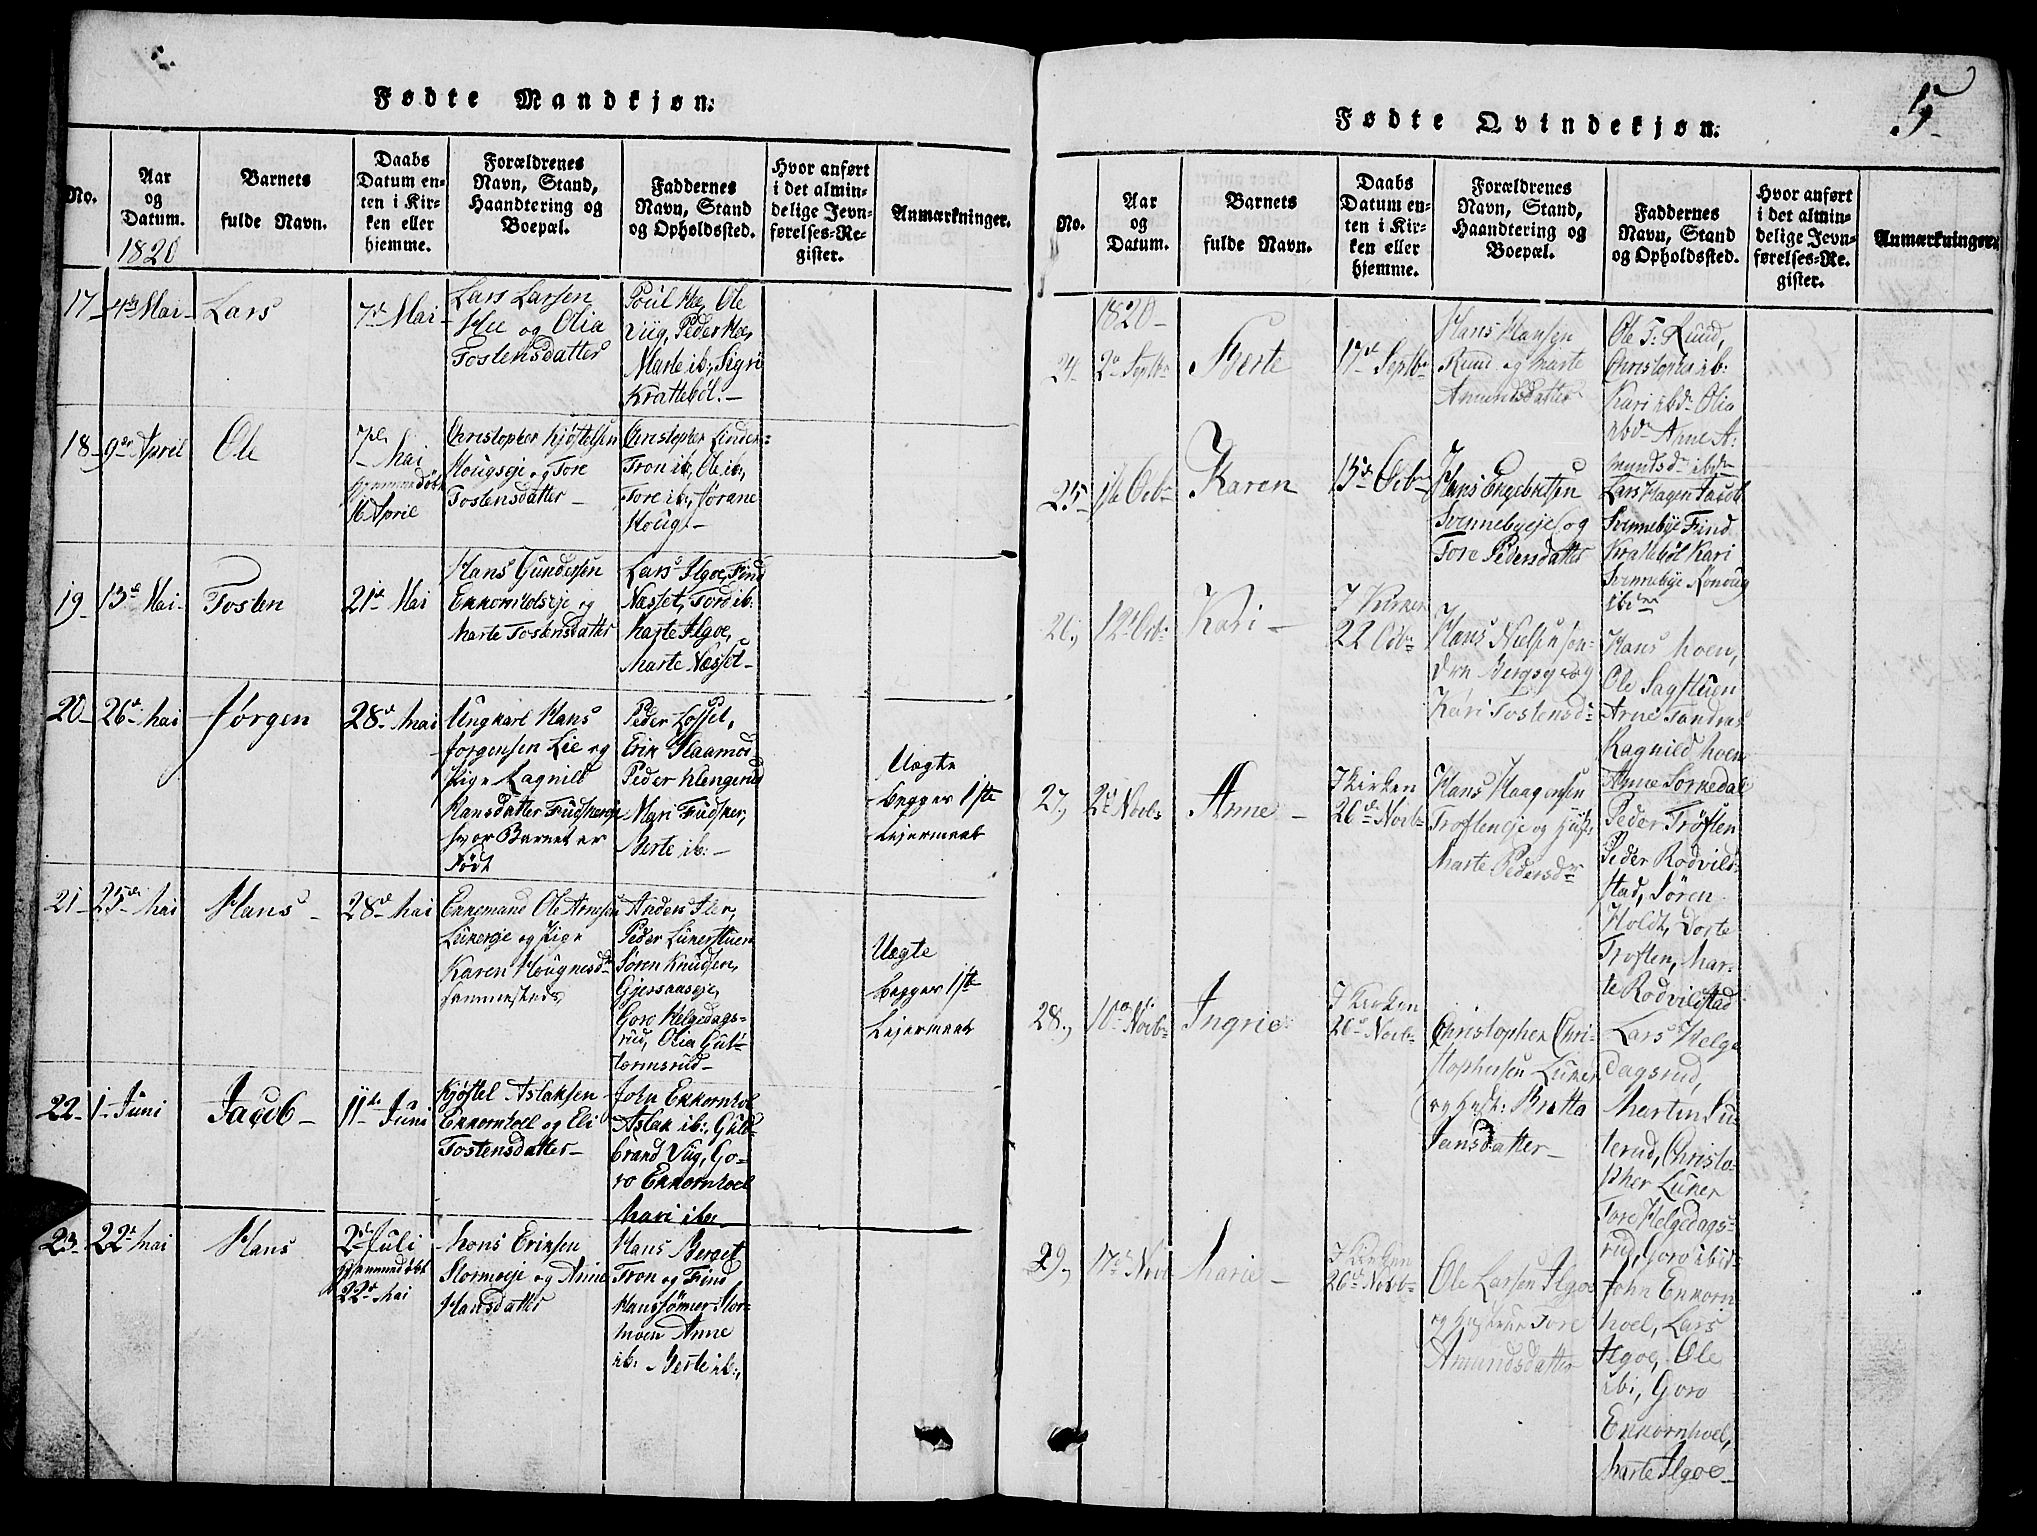 Fødte Mandkjøn:
No.
Aar
og
Datum.
1820
Barnets
fulde Navn.
Daabs
Datum en-
ten i Kir-
ken eller
hjemme.
Forældrenes
Navn, Stand,
Haandtering og
Boepæl.
Faddernes
Navn, Stand
og Opholdssted.
Hvor anført
i det almin-
delige Jevn-
førelses-Re-
gister.
Anmærkninger.
17
4de Mai
Lars
7de Mai
Lars Larsen
Hee og Olia
Tostensdatter
Poul Hee, Ole
Viig, Peder Hee,
Marte ib:, Sigri
Kratlebøl.
18
9de April
Ole
7de Mai
hjemmedøbt
16 April
Christopher Kjøstelsen
Hougseje og Tore
Tostensdatter
Christopher Linder-
Tron ib:, Ole ib:,
Tore ib:, Jørane
Houg.
19
13de Mai
Tosten
21de Mai
Hans Gundersen
Ekkornholseje og
Marte Tostensdatter
Lars Ilgoe, Find
Næsset, Tord ib:
Marte Ilgoe,
Marte Næsset
20
26de Mai
Jørgen
28de Mai
Ungkarl Hans
Jorgensen Lie og
Pige Ragnild
Hansdatter
hvor Barnet er
Født
Peder
Erik
Peder Klengerud
Mari
Berte ib:
Uægte
begges 1ste
Leiermaal
21
25de Mai
Hans
28de Mai
Enkemand Ole Arnesen
Lunkerseje og Pige
Karen Hougnesdr
sammesteds
Anders
Peder Lunkerstuen
Søren Knudsen,
Gjersaaseje,
Goro Helgedags-
rud, Olia Gut-
tormsrud
Uægte
begges 1ste
Leiermaal
22
1 Juni
Jacob
11te Juni
Kjøstel Aslaksen
Ekkornhoel og Eli
Tostensdatter
John Ekkornhoel
Aslak ib:, Guld-
brand Viig, Go-
ro Ekkornhoel
Mari ib:
23
22de Mai
Hans
2de Juli
hjemmedøbt
22de Mai
Mons Eriksen
Stormoeje og Anne
Hansdatter
Hans Berget
Tron og Find
Hanssønner Stor-
moen Anne
ib: Berte ib:,
Fødte Qvindekjøn.
5
No.
Aar
og
Datum.
Barnets
fulde Navn.
Daabs
Datum en-
ten i Kir-
ken eller
hjemme.
Forældrenes
Navn, Stand,
Haandtering og
Boepæl.
Faddernes
Navn, Stand
og Opholdsted.
Hvor anført
i det almin-
delige Jevn-
førelses-Re-
gister.
Anmærkninger.
1820
24
2de Septbr
Berte
17de Septbr
Hans Hansen
Ruud og Marte
Amundsdatter
Ole T: Ruud,
Christopher ib:
Kari ibdr Olia
ibdr Anne A-
mundsdr ibdr
25
1ste Octbr
Karen
15de Octbr
Hans Engebretsen
Svennebyeje og
Tore Pedersdatter
Lars Hagen Jacob
Svennebye Find
Kratlebøl Kari
Svennebye Ronoug
ibidem
26,
12de Octbr
Kari
I Kirken
22 Octbr
Hans Nielsen Søn-
dre Bergseje og
Kari Tostensdr
Hans Moen,
Ole Sagstuen
Arne
Ragnild Moen
Anne Sorkedal
27,
2de Novbr
Anne
I Kirken
26de Novbr
Hans Haagensen
Trøfteneje og Hust:
Marte Pedersdr
Peder Trøften
Peder Rodvild-
stad, Søren
Holdt, Dorte
Trøften, Mar-
te Rodvildstad
28,
10de Novbr
Ingrie
I Kirken
26de Novbr
Christopher Chri-
stophersen Lunker
og Hust: Britta
Jensdatter
Lars Helge
Dagsrud,
Martin Su-
terud, Christo-
pher Lunker
Tore Helgedags-
rud, Goro ibid-
29,
17de Novbr
Marie
I Kirken
26de Novbr
Ole Larsen Ilgoe
og Hustrue Tore
Amundsdatter
John Ekkorn
hoel, Lars
Ilgoe, Ole
ib:, Goro
Ekkornhoel,
Marte Ilgoe